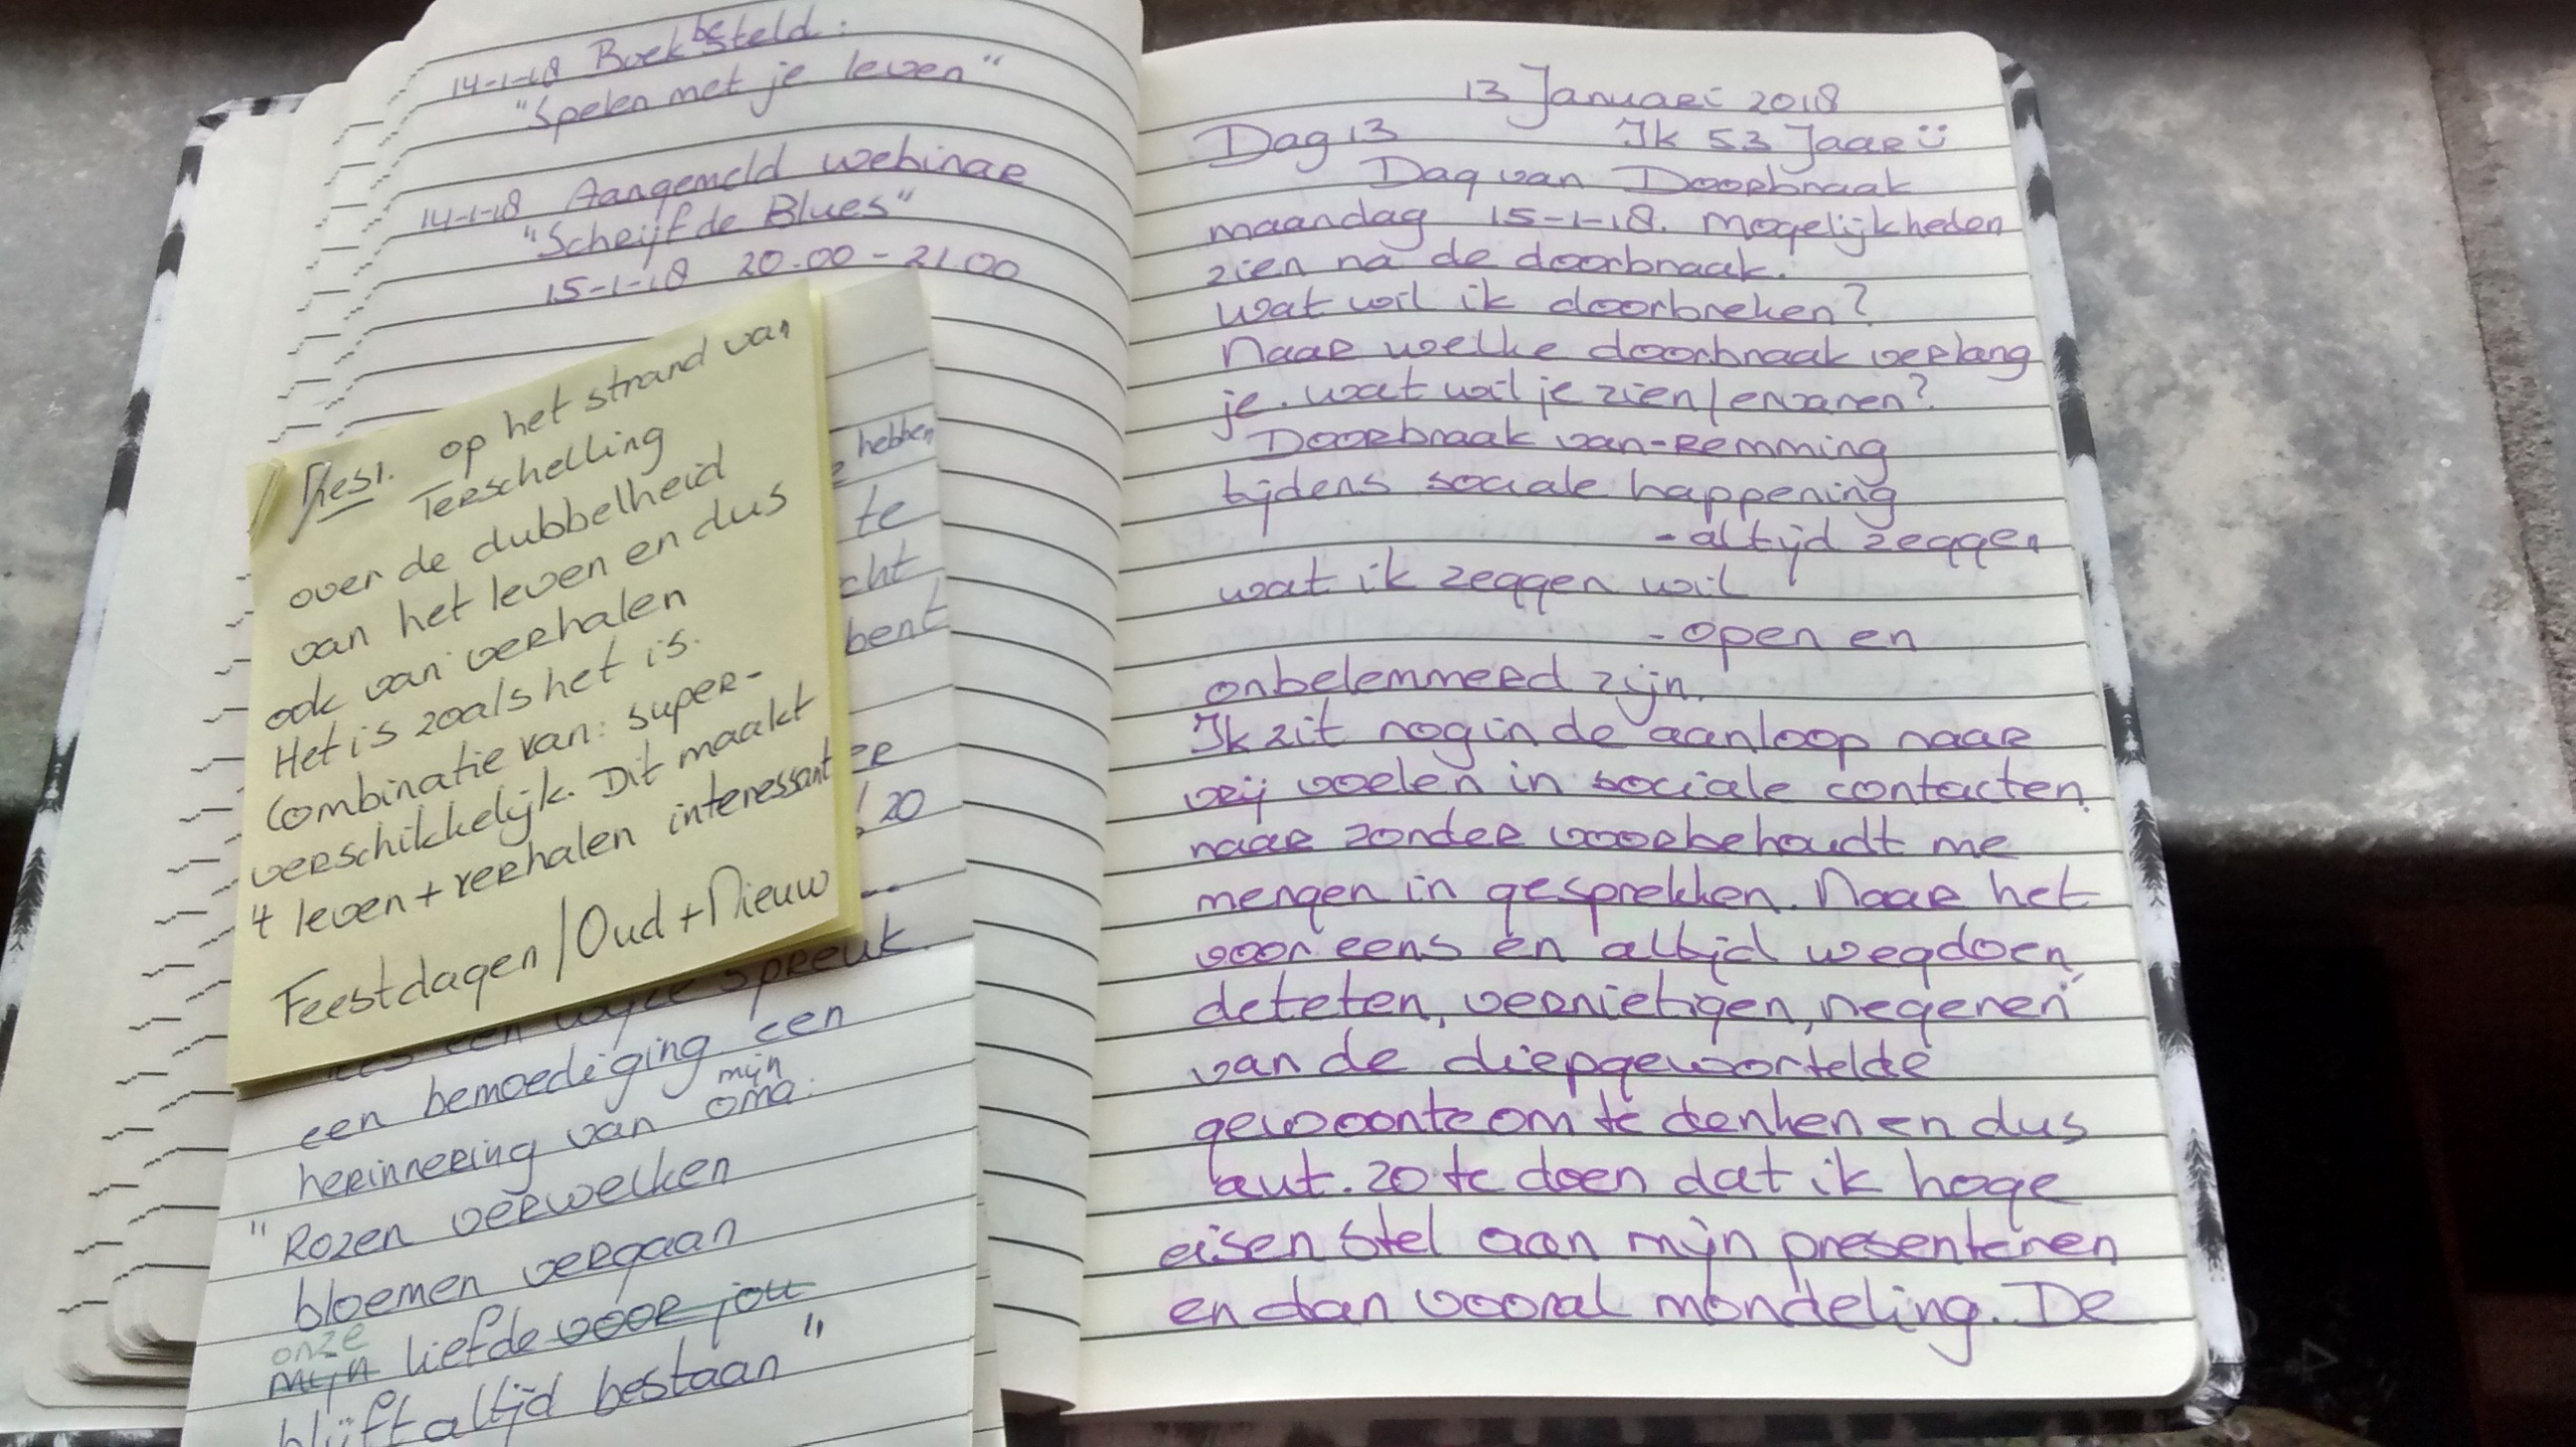 14-1-18 Boek besteld:
"Spelen met je leven"
14-1-18 Aangemeld webinar
"Schrijf de Blues"
15-1-18 20.00 - 21.00
op het strand van
Terschelling
over de dubbelheid
van het leven en dus
ook van verhalen
Het is zoals het is.
Combinatie van: super-
verschikkelijk. Dit maakt
't leven + verhalen interessant
Feestdagen / Oud + Nieuw
hebben
te
cht
bent
er
! 20
een wijze spreuk.
een bemoediging een
herinnering van mijn oma.
"Rozen verwelken
bloemen vergaan
onze
mijn liefde voor jou
blijft altijd bestaan"
13 Januari 2018
Dag 13 Ik 53 Jaar ü
Dag van Doorbraak
maandag 15-1-18. Mogelijkheden
zien na de doorbraak.
Wat wil ik doorbreken?
Naar welke doorbraak verlang
je. wat wil je zien/ervaren?
Doorbraak van - Remming
tijdens sociale happening
- altijd zeggen
wat ik zeggen wil
- open en
onbelemmerd zijn.
Ik zit nog in de aanloop naar
vrij voelen in sociale contacten.
naar zonder voorbehoudt me
mengen in gesprekken. Naar het
voor eens en altijd wegdoen,
deteten, vernietigen, negeren
van de diepgewortelde
gewoonte om te denken en dus
aut. zo te doen dat ik hoge
eisen stel aan mijn presenteren
en dan vooral mondeling. De